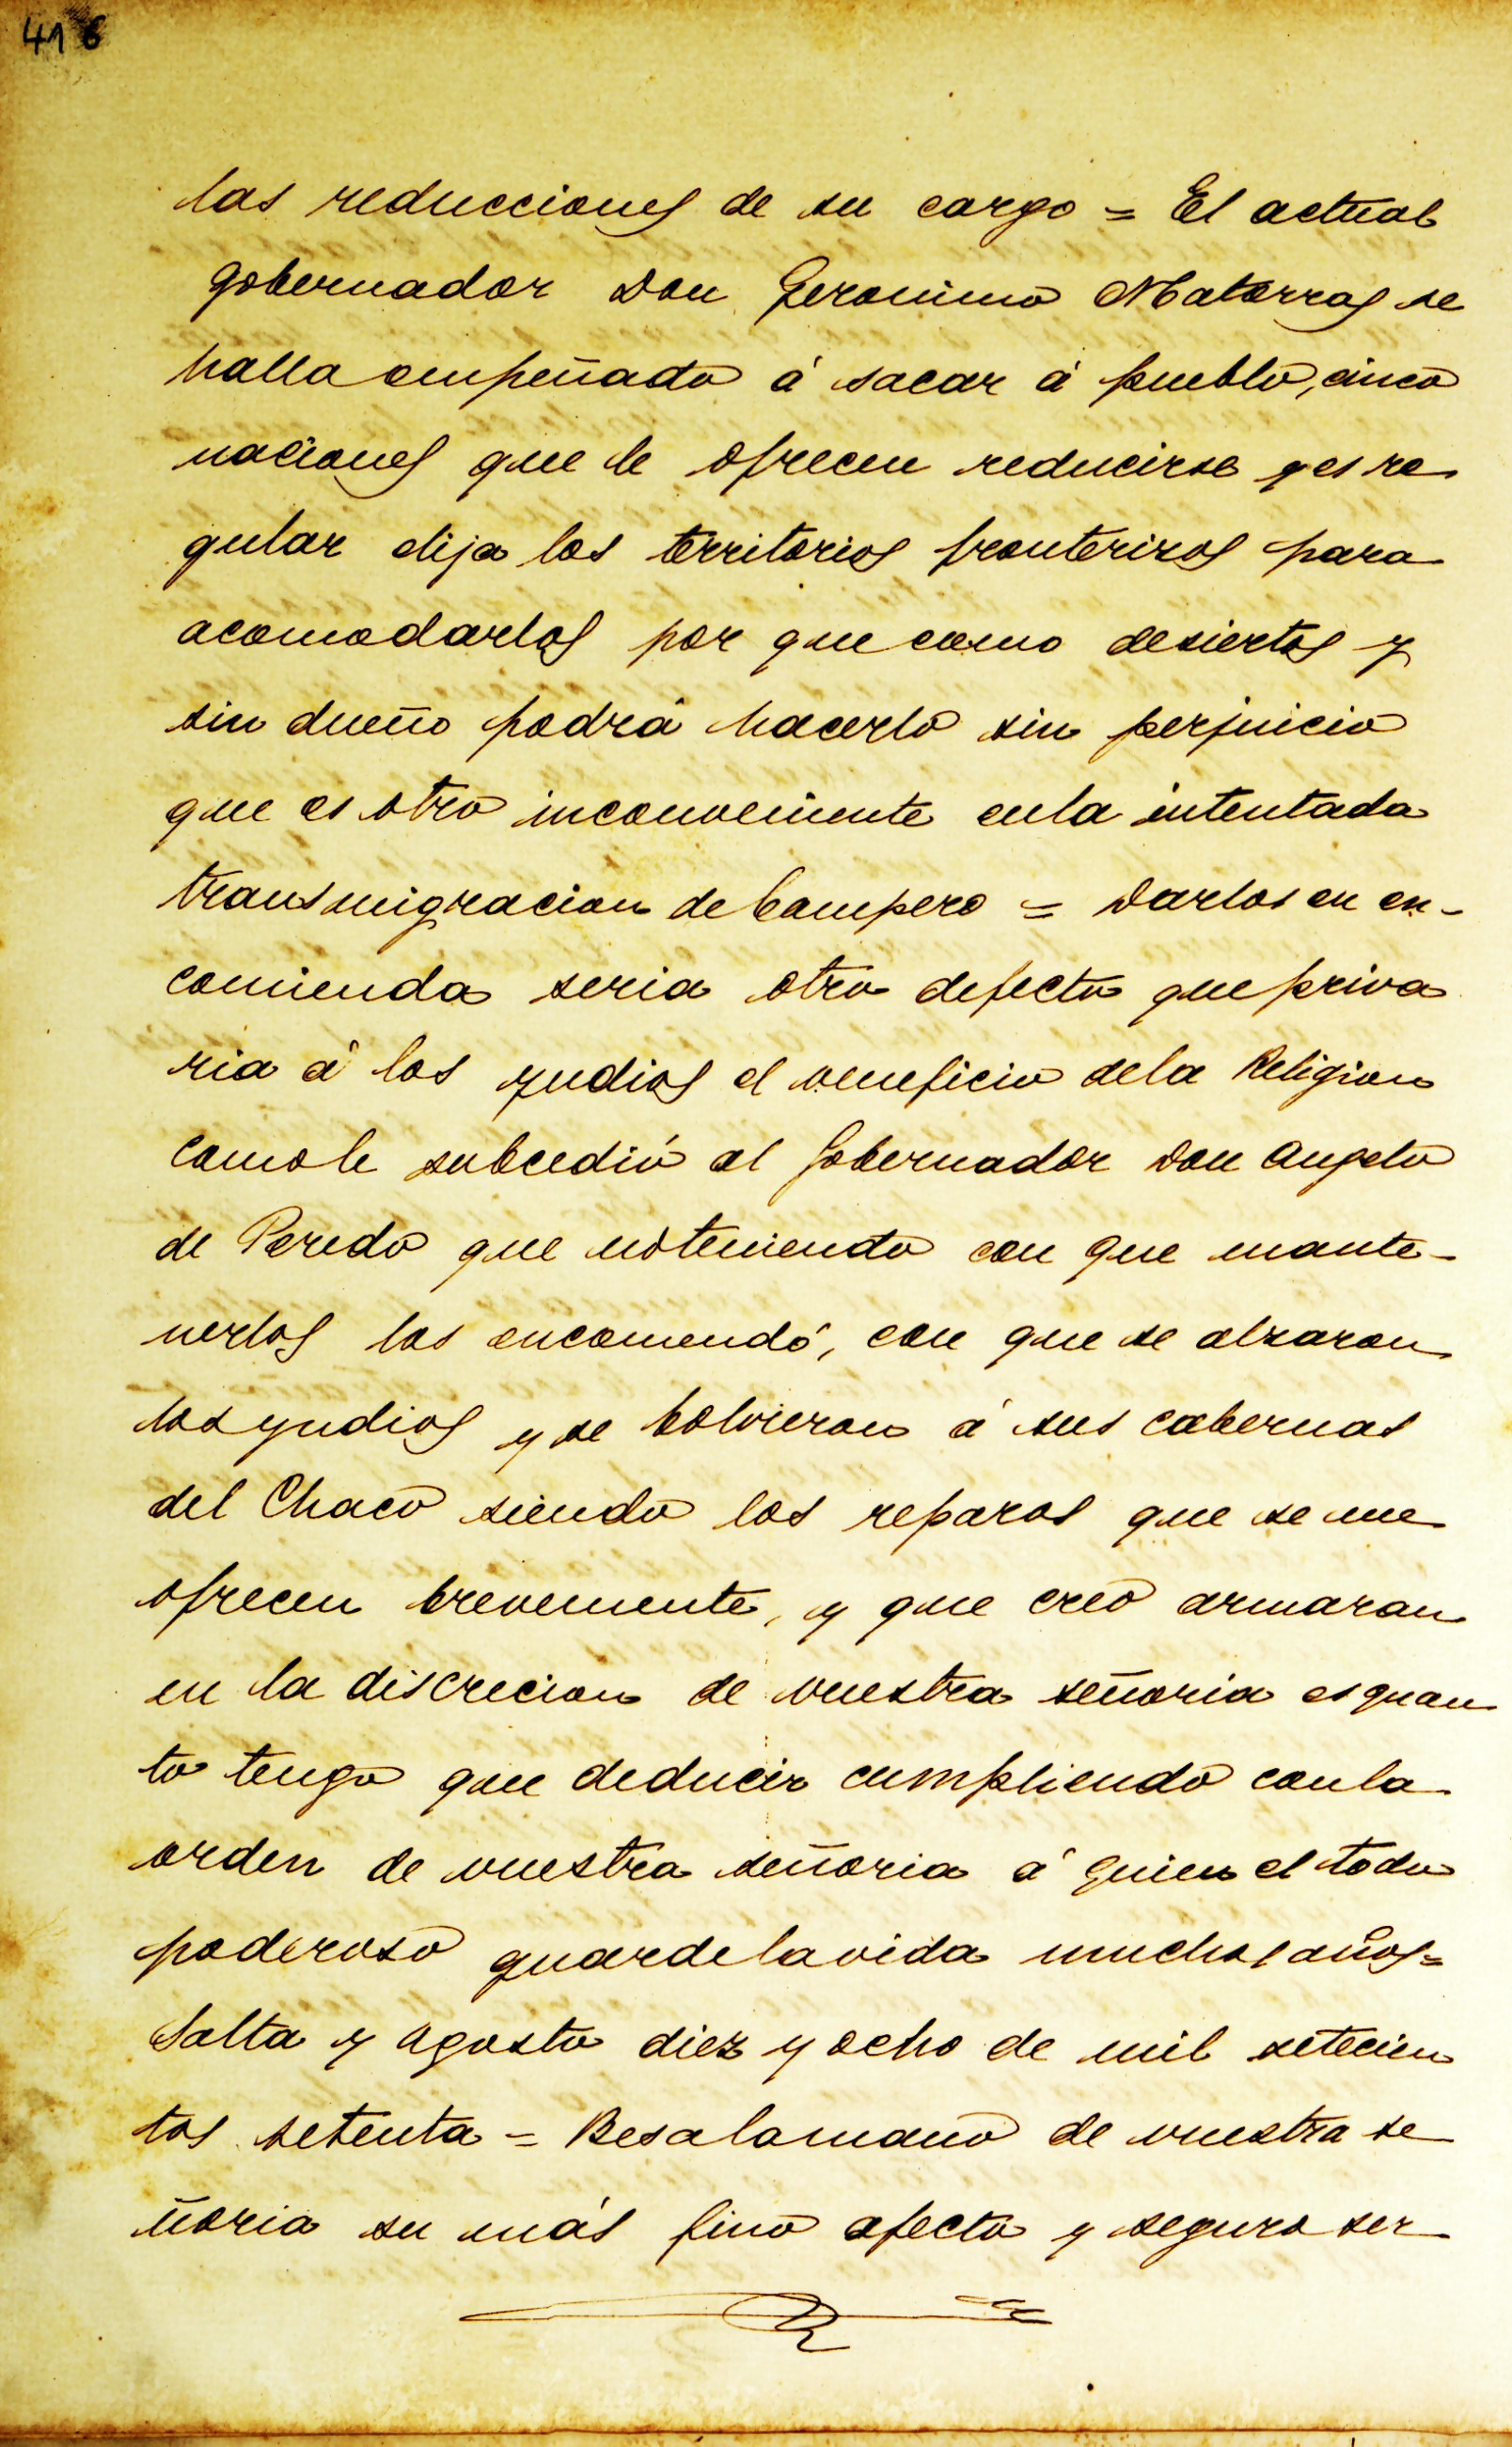 416
las reducciones de su cargo = El actual
gobernador Don Geronimo Matorras se
halla empeñado á sacar á pueblo, cinco
naciones que le ofrecen reducirse y es re
gular elija los territorios fronterizos para
acomodarlos por que como desiertos y
sin dueño podrá hacerlo sin perjuicio
que es otro inconveniente enla intentada
transmigracion de Campero = Darlos en en-
comienda seria otro defecto que priva
ria á los yndios el veneficio dela Religion
como le subcedió al Gobernador Don Angelo
de Peredo que noteniendo con que mante-
nerlos los encomendó, con que se alzaron
los yndios y se bolvieron á sus cabernas
del Chaco siendo los reparos que se me
ofrecen brevemente, y que creo armaran
en la discrecion de vuestra señoria es quan
to tengo que deducir cumpliendo conla
orden de vuestra señoria á quien el todo
poderoso guarde la vida muchos años=
Salta y Agosto diez y ocho de mil setecien
tos setenta = Besalamano de vuestra se
ñoria su más fino afecto y seguro ser